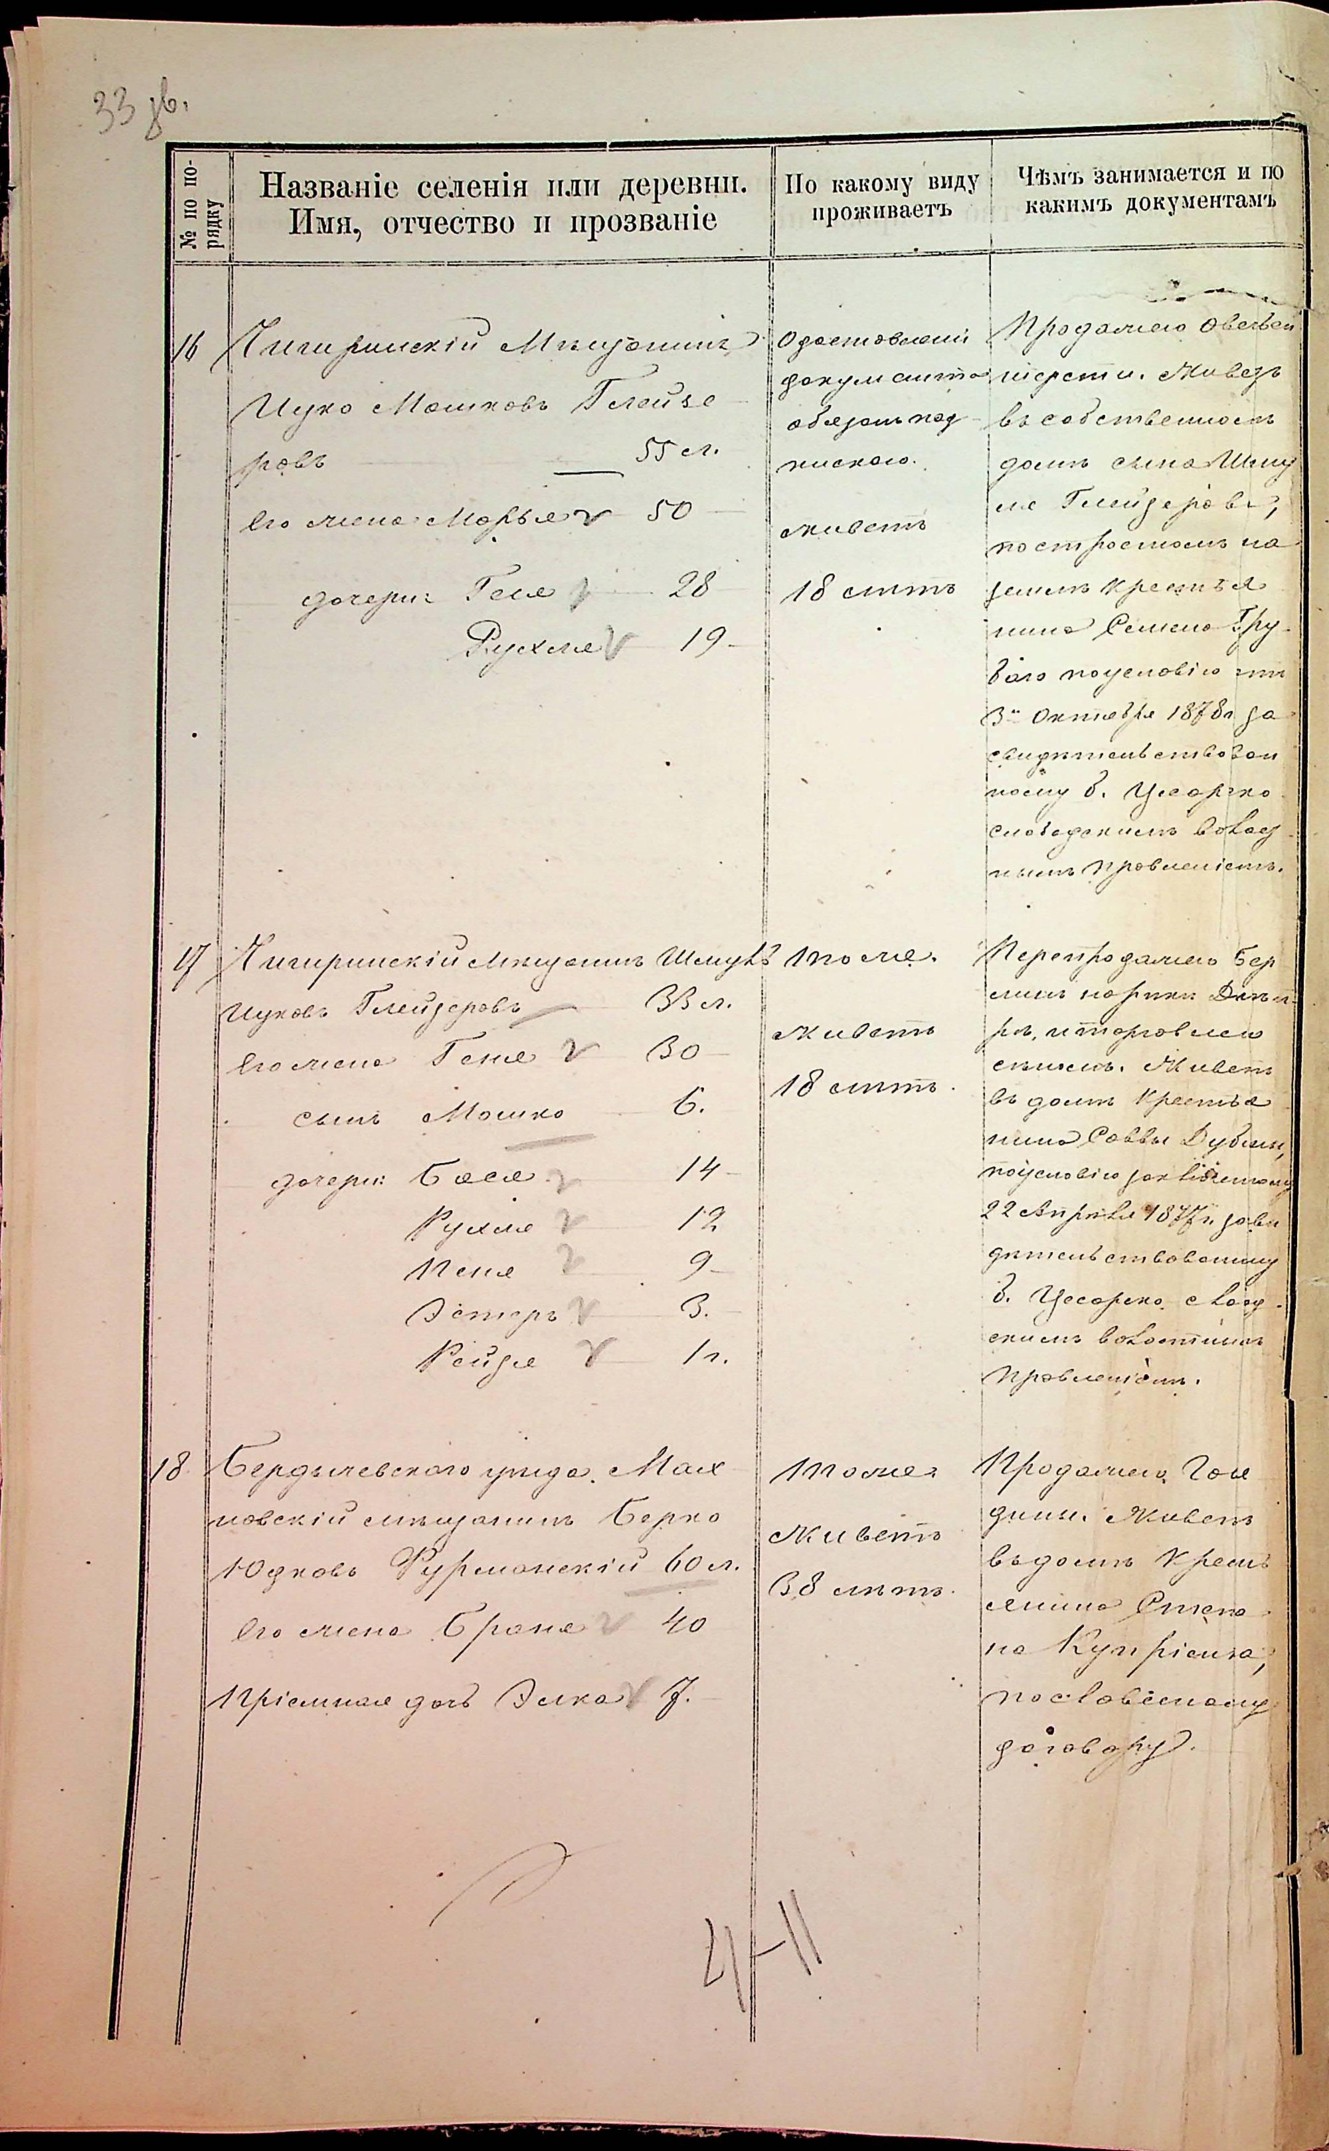 33 зв.
№ по по-
рядку
Названіе селенія или деревни.
Имя, отчество и прозваніе
По какому виду
проживаетъ
Чѣмъ занимается и по
какимъ документамъ
16
Чигиринскій Мѣщанинъ
Ицко Мошковъ Глейзе
ровъ 55 л.
Его жена Марья 50
дочери: Геля 28
Рухля 19
О доставленіи
документа
обязанъ под
пискою.
живетъ
18 лѣтъ
Продажею овечьей
шерсти. Живетъ
въ собственномъ
домѣ сына Шму
ля Глейзерова,
построенномъ на
землѣ крестья
нина Семена Гру
баго по условію отъ
3го Октября 1878 г. за
свидѣтельствован
ному б. Цесарско
слободскимъ волост
нымъ правленіемъ.
17
Чигиринскій мѣщанинъ Шмуль
Ицковъ Глейзеровъ 33 л.
Его жена Геня 30
сынъ Мошко 6.
дочери: Бася 14
Рухля 12
Пеня 9
Эстеръ 3.
Рейзя 1 г.
тоже.
живетъ
18 лѣтъ.
Перепродажею бер
линъ на рѣкѣ Днѣп
рѣ, и торговлею
сѣномъ. Живетъ
въ домѣ Крестья
нина Саввы
по условію заключенному
22 Апрѣля 1877 г. засви
дѣтельствованному
б. Цесарско слобод
скимъ волостнымъ
правленіемъ.
18
Бердичевскаго уѣзда. Мах
новскій мѣщанинъ Берко
Юдковъ Фурманскій 60 л.
Его жена Браня 40
Пріемная дочь Элка 7.
тоже
Живетъ
38 лѣтъ.
Продажею
Живетъ
въ домѣ Кресть
янина Степа
на Купріенка,
по словесному
договору.
4-11